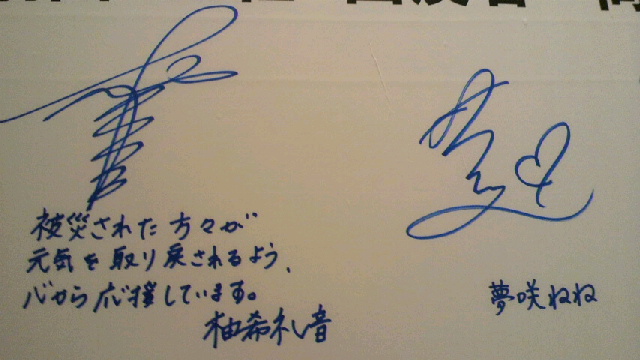 被災された方々が
元気を取り戻されるよう、
心から応援しています。
柚希礼音
夢咲ねね